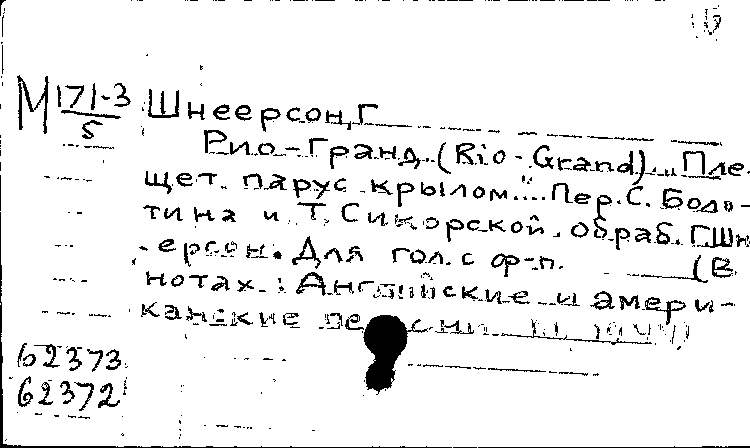 М 171-3
5
Шнеерсон, Г
Рио-Гранд. (Rio-Grand) „Пле-
щет парус крылом"... Пер. С. Боло-
тина и Т. Сикорской. Обраб. Г. Шне-
ерсон. Для гол. с ф-п. (В
нотах: Английские и амери-
канские песни М., 1944)
62373
62372